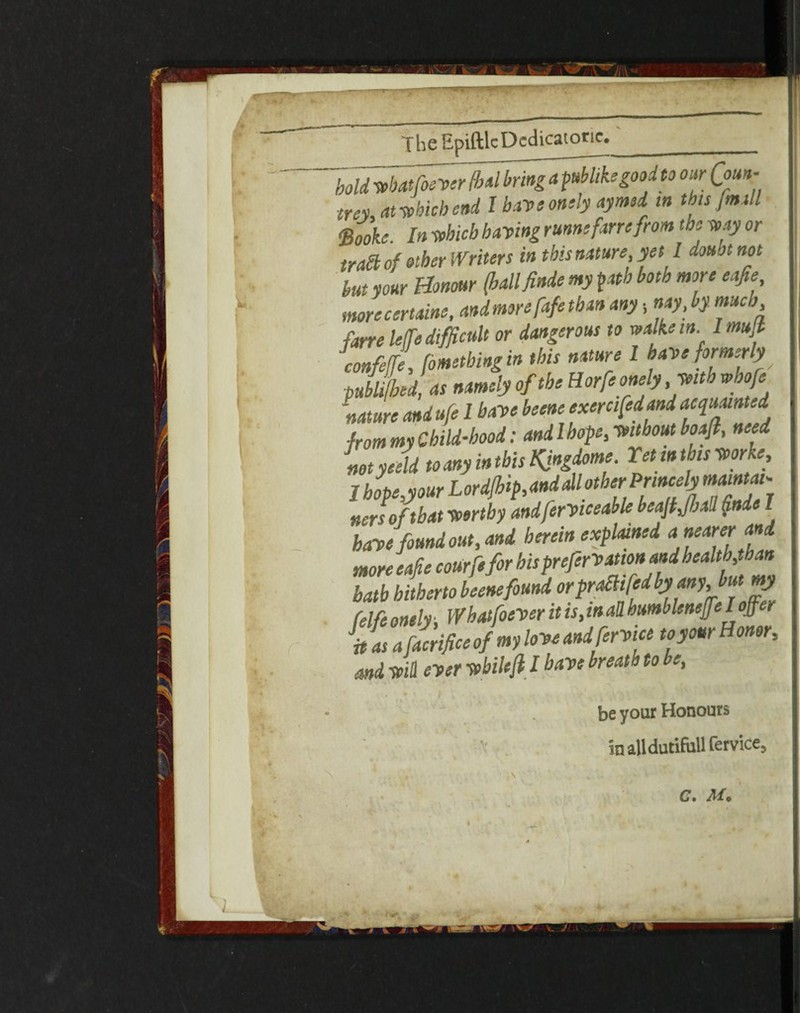 The Epiſtle Dedicatorie.
hold whatſoever ſhal bring a publike good to our Coun-
trey, at which end I have onely aymed in this ſmall
Booke. In which having runne farre from the way or
tract of other Writers in this nature, yet I doubt not
but your Honour ſhall finde my path both more eaſie,
more certaine, and more ſafe than any; nay, by much,
farre leſſe difficult or dangerous to walke in. I muſt
confeſſe, ſomething in this nature I have formerly
publiſhed, as namely of the Horſe onely, with whoſe
nature and uſe I have beene exerciſed and acquainted
from my Child-hood: and I hope, without boaſt, need
not yeeld to any in this Kingdome. Yet in this worke,
I hope, your Lordſhip, and all other Princely maintai-
ners of that worthy and ſerviceable beaſt, ſhall finde I
have found out, and herein explained a nearer and
more eaſie courſe for his preſervation and health, than
hath hitherto beene found or practiſed by any, but my
ſelfe onely; Whatſoever it is, in all humbleneſſe I offer
it as a ſacrifice of my love and ſervice to your Honor,
and will ever whileſt I have breath to be,
be your Honours
in all dutifull ſervice,
G. M.